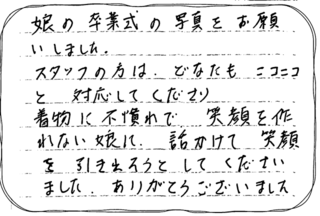 娘の卒業式の写真をお願
いしました.
スタッフの方は、どなたも ニコニコ
と 対応してくださり
着物に不慣れで 笑顔を作
れない娘に、話かけて 笑顔
を 引き出そうと してください
ました. ありがとうございました